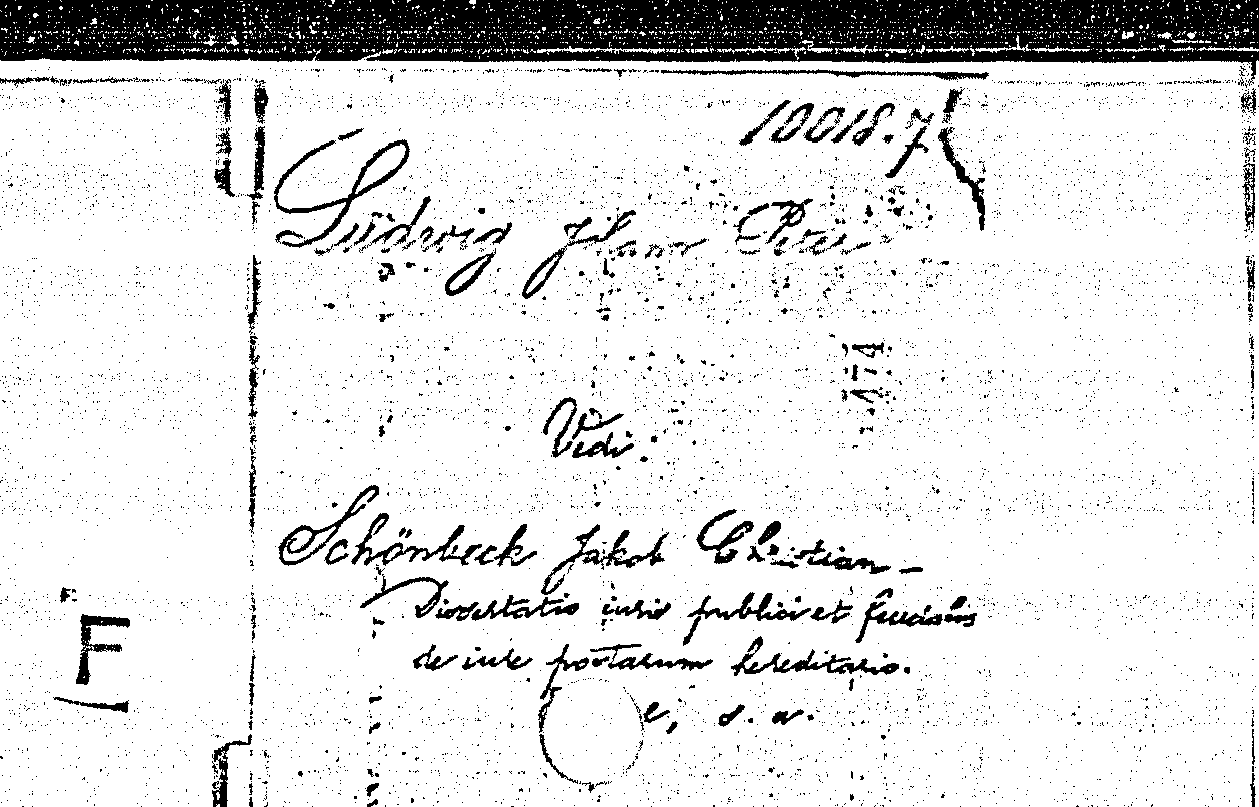 10018.7
Ludwig Johann Peter
474
Vidi:
Schönbeck Jakob Christian -
Dissertatio iuris publici et
de iure portarum hereditario.
e, s. a.
F